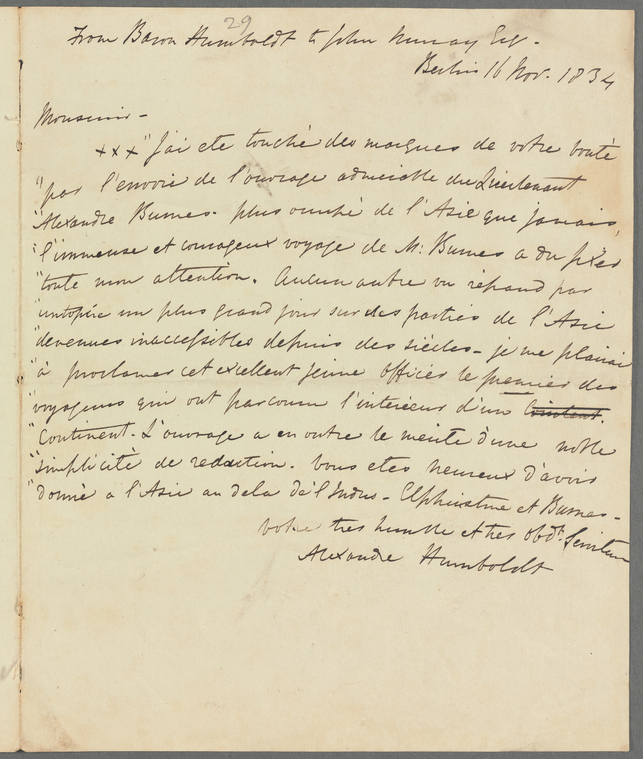 29
From Baron Humboldt to John Murray Esq.
Berlin 16 Nov. 1834
Monsieur -
xxx "J'ai ete touché des marques de votre bonté
"par l'envoie de l'ouvrage admirable du Lieutenant
"Alexandre Burnes. plus de l'Asie que jamais,
"l'immense et courageux voyage de M: Burnes a du fixer
"toute mon attention. Aucun autre ne répand par
"un plus grand jour sur des parties de l'Asie
"devenues inaccessibles depuis des siécles - je me plairai
"à proclamer cet excellent jeune officer le premier des
"voyageurs qui ont parcouru l'interieur d'un
"Continent. L'ouvrage a en outre le merite d'une noble
"simplicité de redaction. Vous etes heureux d'avoir
"donné a l'Asie au dela de l'Indus - Elphinstone et Burnes -
votre tres humble et tres obdt. Serviteur
Alexandre Humboldt